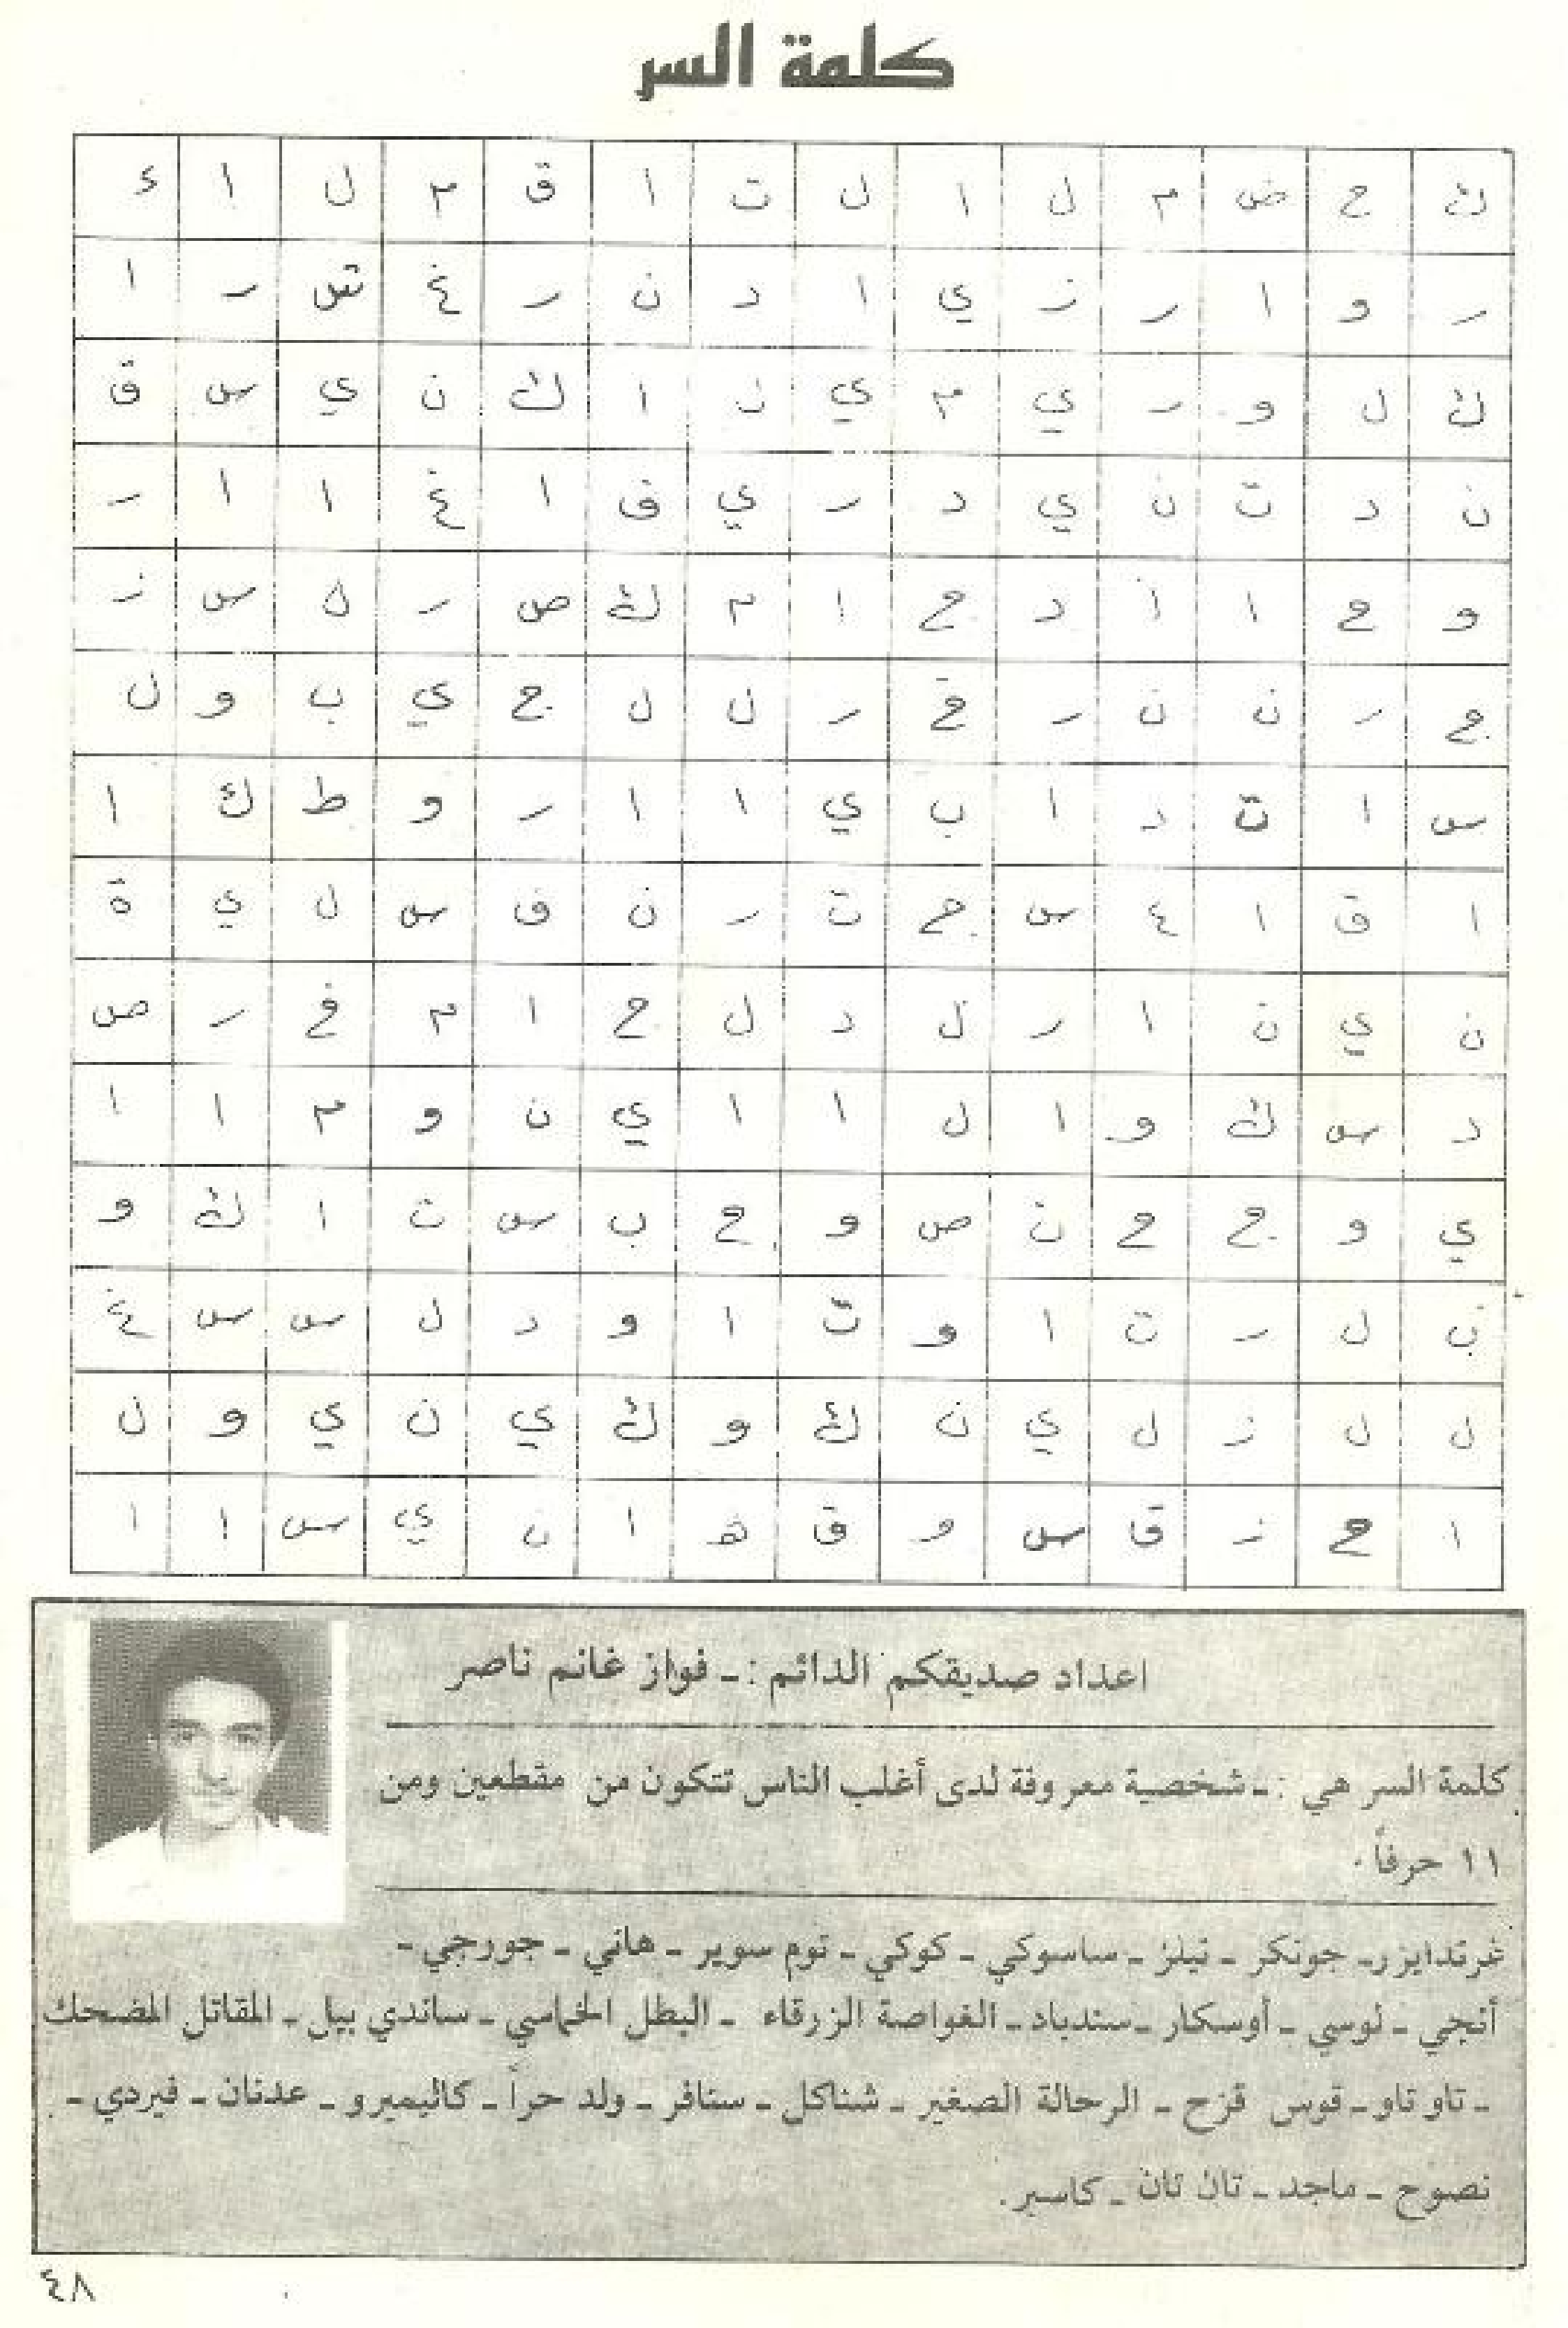 كلمة السر
ك ح ض م ل ا ل ت ا ق م ل ا ء
ر و ا ر ز ي ا د ن ر غ ش ر ا
ك ل و ر ي م ي ل ا ك ن ي س ق
ن د ت ن ي د ر ي ف ا غ ا ا ر
و ح ا أ د ج ا م ك ص ر ن س ز
ج ر ن ن ر ح ر ل ل ج ي ب و ل
س ا ت د ا ب ي ا ا ر و ط ك ا
ا ق ا ع س ج ت ر ن ف س ل ي ة
ن ي ن ا ر ل د ل ح ا م خ ر ص
د س ك و ا ل ا ا ي ن و م ا ا
ي و ج ح ن ص و ح ب س ت ا ك و
ب ل ر ت ا و ت ا و د ل س س غ
ل ل ز ل ي ن ك و ك ي ن ي و ل
ا ح ز ق س و ق ه ا ن ي س ا ا
اعداد صديقكم الدائم :ـ فواز غانم ناصر
كلمة السر هي :ـ شخصية معروفة لدى أغلب الناس تتكون من مقطعين ومن
١١ حرفاً.
غرندايزر ـ جونكر ـ نيلز ـ ساسوكي ـ كوكي ـ توم سوير ـ هاني ـ جورجي ـ
أنجي ـ لوسي ـ أوسكار ـ سندباد ـ الغواصة الزرقاء ـ البطل الخماسي ـ ساندي بيل ـ المقاتل المضحك
ـ تاو تاو ـ قوس قزح ـ الرحالة الصغير ـ شناكل ـ سنافر ـ ولد حراً ـ كاليميرو ـ عدنان ـ فيردي ـ
نصوح ـ ماجد ـ تان تان ـ كاسبر.
٤٨